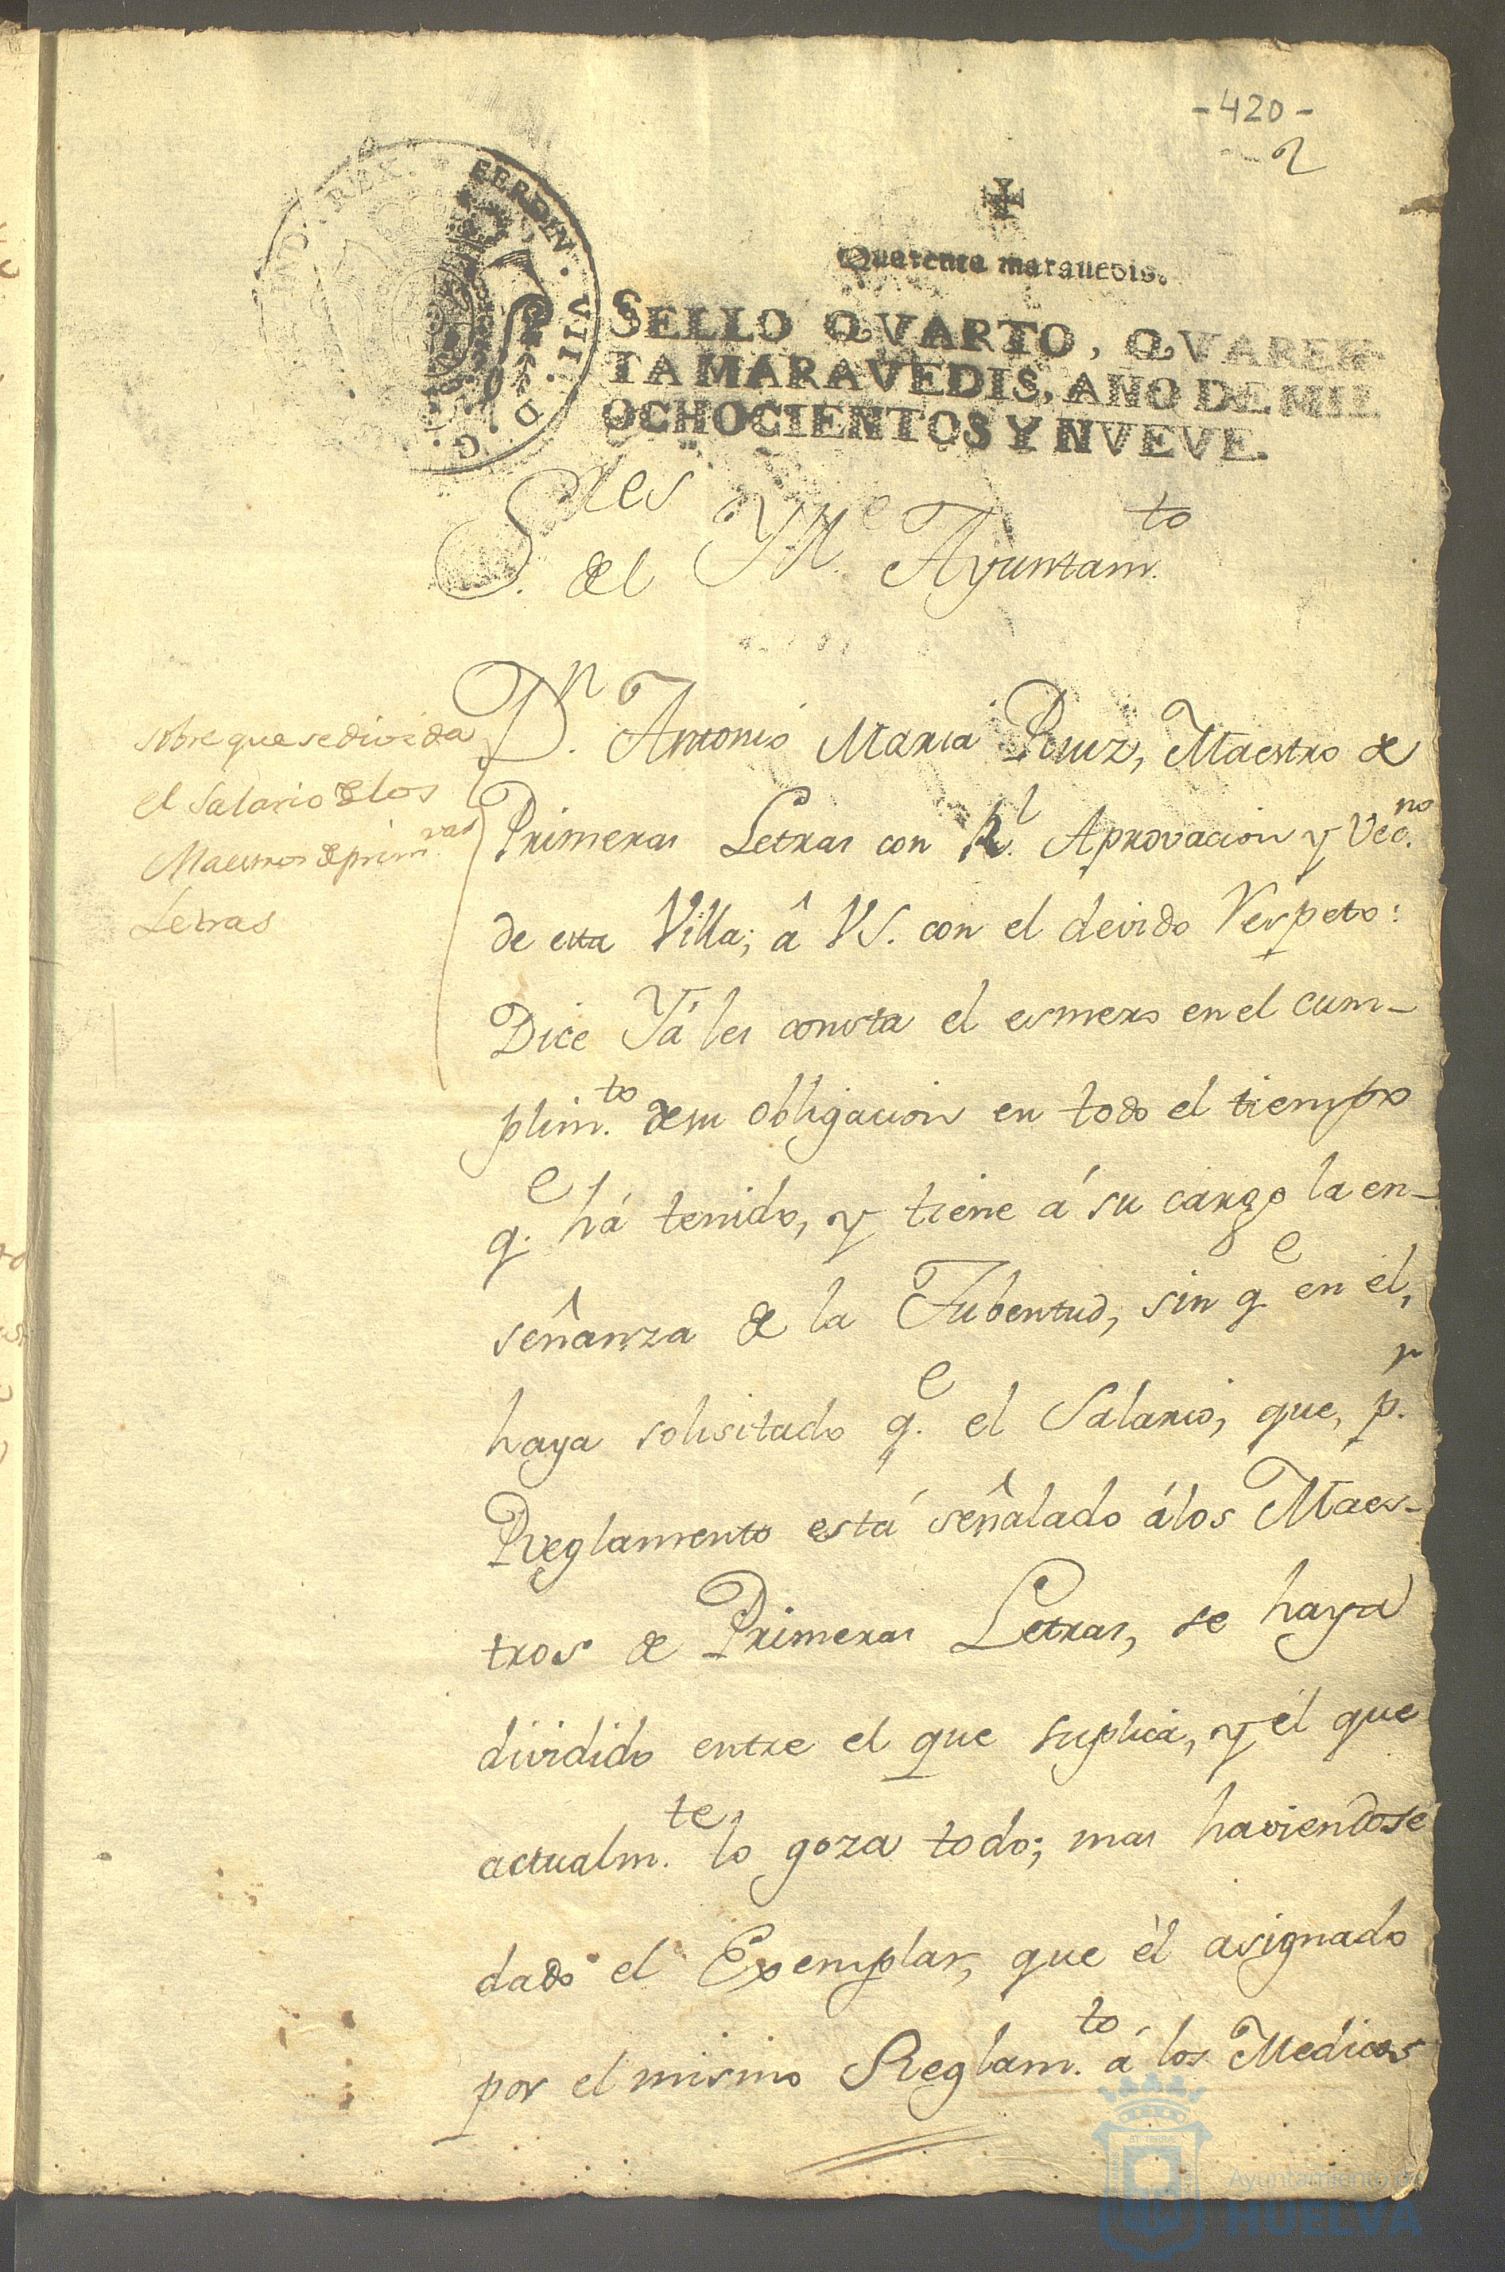 -420-
2
FERDIN. VII. D. G.
IND. REX.
Quarenta marauedis.
SELLO QVARTO, QVAREN-
TA MARAVEDIS, AÑO DE MIL
OCHOCIENTOS Y NVEVE.
S.res del Yll.e Ayuntam.to
sobre que se divida
el salario de los
Maestros de prim.ras
Letras
D.n Antonio Maria Ruiz, Maestro de
Primeras Letras con R.l Aprovacion y Vec.no
de esta Villa; â VS. con el devido Respeto:
Dice Yá les consta el esmero en el cum-
plim.to de su obligacion en todo el tiempo
q.e há tenido, y tiene á su cargo la en-
señanza de la Jubentud, sin q.e en él,
haya solisitado q.e el Salario, que, p.r
Reglamento está señalado á los Maes-
tros de Primeras Letras, se haya
dividido entre el que suplica, y él que
actualm.te lo goza todo; mas haviendose
dado el Exemplar, que él asignado
por el mismo Reglam.to á los Medicos
Ayuntamiento de
HUELVA